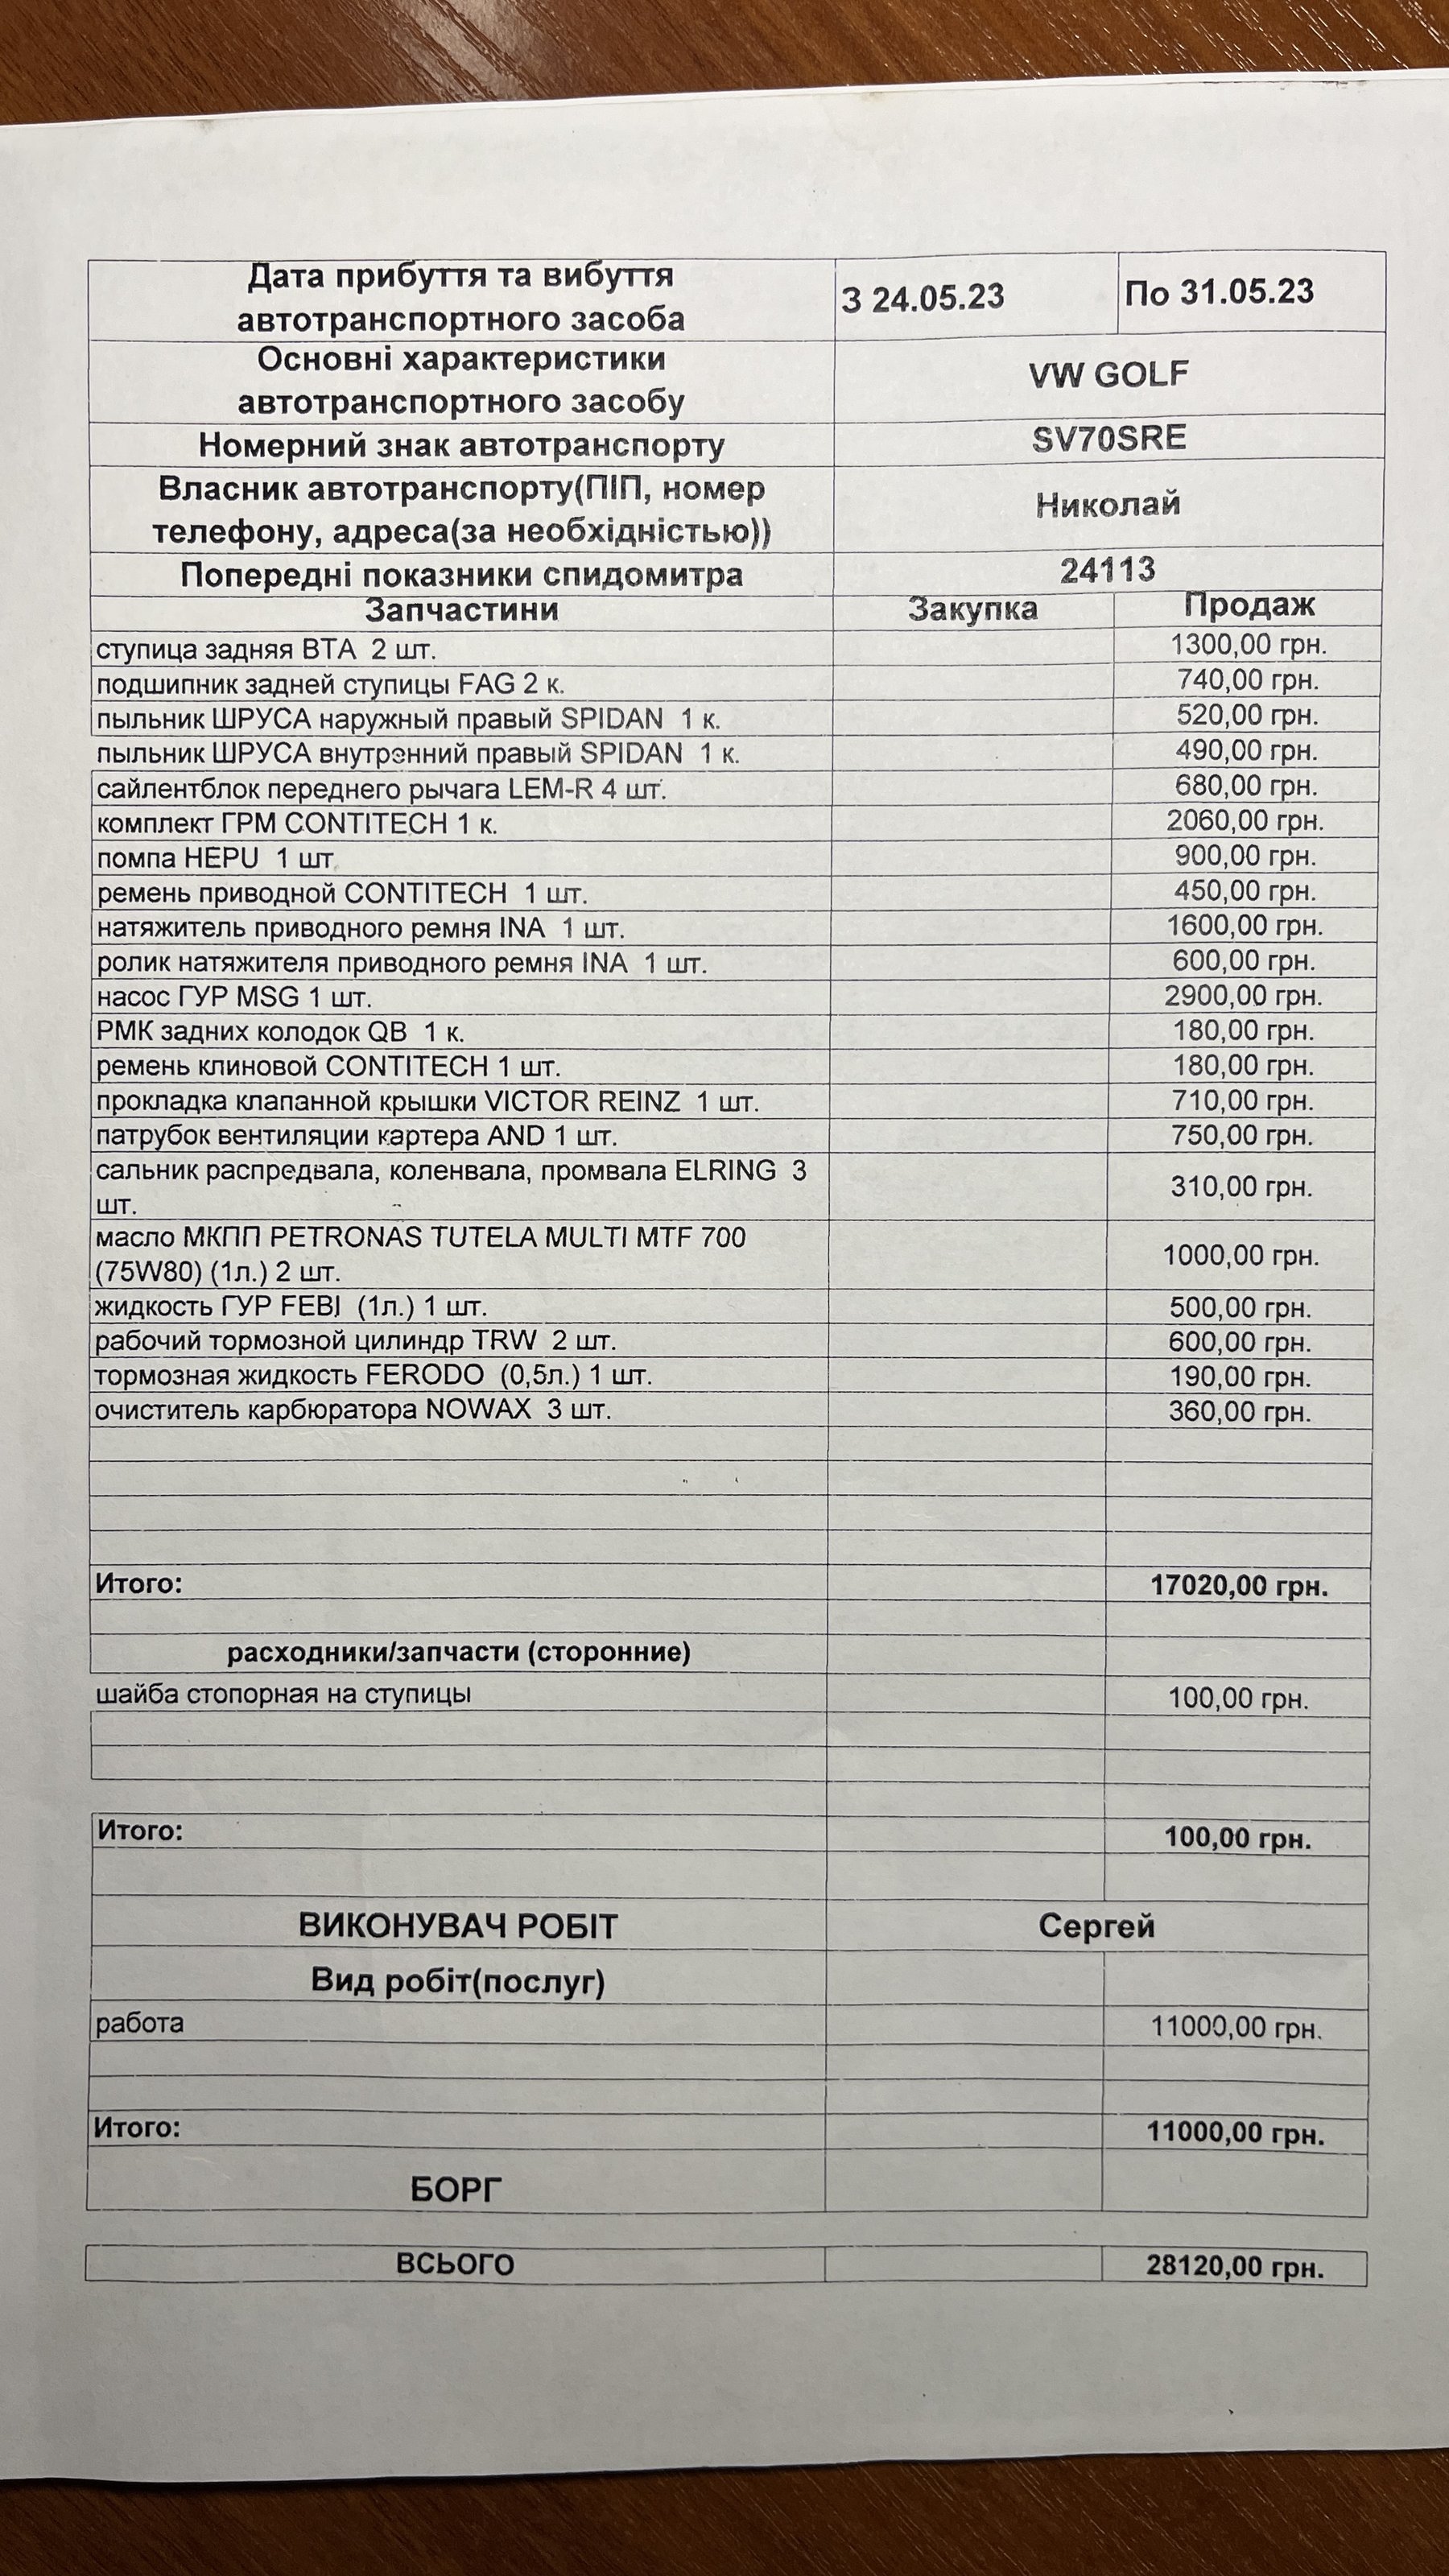 Дата прибуття та вибуття
автотранспортного засоба
З 24.05.23
По 31.05.23
Основні характеристики
автотранспортного засобу
VW GOLF
Номерний знак автотранспорту
SV70SRE
Власник автотранспорту(ПІП, номер
телефону, адреса(за необхідністью))
Николай
Попередні показники спидомитра
24113
Запчастини Закупка Продаж
ступица задняя BTA 2 шт. 1300,00 грн.
подшипник задней ступицы FAG 2 к. 740,00 грн.
пыльник ШРУСА наружный правый SPIDAN 1 к. 520,00 грн.
пыльник ШРУСА внутренний правый SPIDAN 1 к. 490,00 грн.
сайлентблок переднего рычага LEM-R 4 шт. 680,00 грн.
комплект ГРМ CONTITECH 1 к. 2060,00 грн.
помпа HEPU 1 шт. 900,00 грн.
ремень приводной CONTITECH 1 шт. 450,00 грн.
натяжитель приводного ремня INA 1 шт. 1600,00 грн.
ролик натяжителя приводного ремня INA 1 шт. 600,00 грн.
насос ГУР MSG 1 шт. 2900,00 грн.
РМК задних колодок QB 1 к. 180,00 грн.
ремень клиновой CONTITECH 1 шт. 180,00 грн.
прокладка клапанной крышки VICTOR REINZ 1 шт. 710,00 грн.
патрубок вентиляции картера AND 1 шт. 750,00 грн.
сальник распредвала, коленвала, промвала ELRING 3
шт.
310,00 грн.
масло МКПП PETRONAS TUTELA MULTI MTF 700
(75W80) (1л.) 2 шт.
1000,00 грн.
жидкость ГУР FEBI (1л.) 1 шт. 500,00 грн.
рабочий тормозной цилиндр TRW 2 шт. 600,00 грн.
тормозная жидкость FERODO (0,5л.) 1 шт. 190,00 грн.
очиститель карбюратора NOWAX 3 шт. 360,00 грн.
Итого: 17020,00 грн.
расходники/запчасти (сторонние)
шайба стопорная на ступицы 100,00 грн.
Итого: 100,00 грн.
ВИКОНУВАЧ РОБІТ Сергей
Вид робіт(послуг)
работа 11000,00 грн.
Итого: 11000,00 грн.
БОРГ
ВСЬОГО 28120,00 грн.